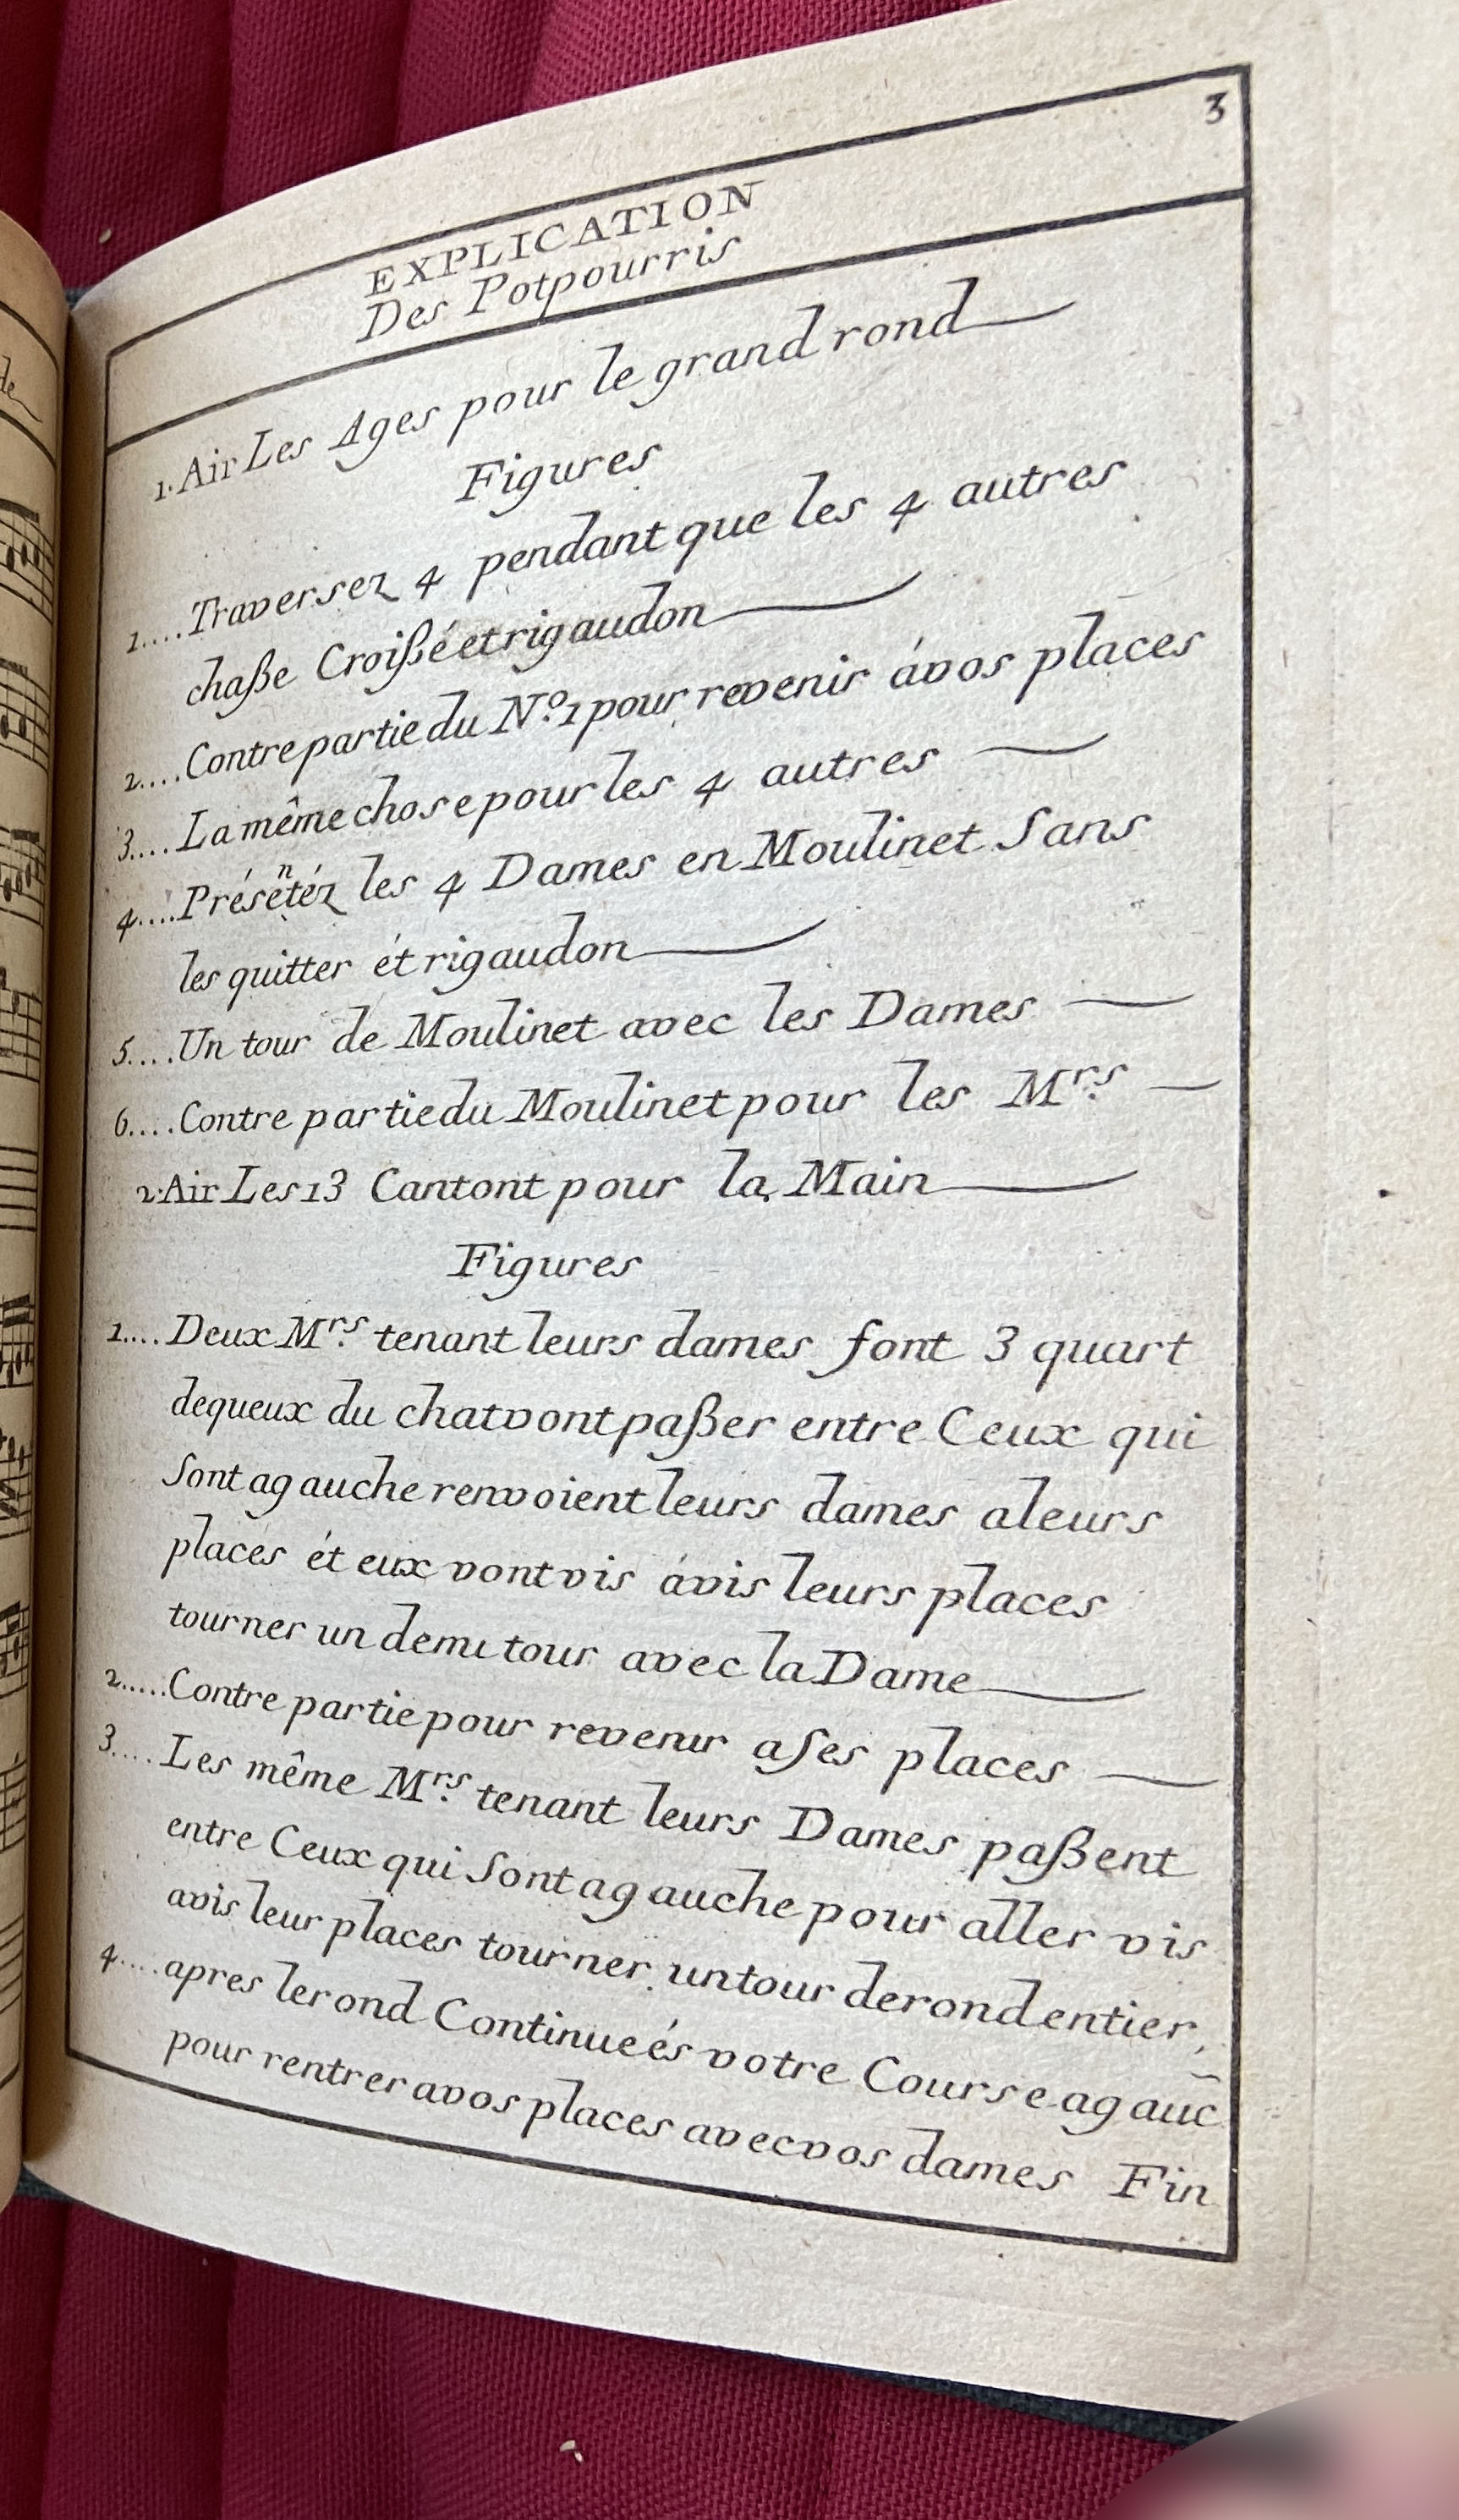 3
EXPLICATION
Des Potpourris
1. Air Les Ages pour le grand rond
Figures
1.... Traversez 4 pendant que les 4 autres
chaße Croißé et rigaudon
2.... Contre partie du N.º 1 pour revenir ávos places
3.... La même chose pour les 4 autres
4.... Présentéz les 4 Dames en Moulinet Sans
les quitter ét rigaudon
5.... Un tour de Moulinet avec les Dames
6.... Contre partie du Moulinet pour les M.rs
2. Air Les 13 Cantont pour la Main
Figures
1.... Deux M.rs tenant leurs dames font 3 quart
dequeux du chat vont paßer entre Ceux qui
Sont agauche renvoient leurs dames aleurs
places ét eux vont vis ávis leurs places
tourner un demi tour avec la Dame
2..... Contre partie pour revenir a Ses places
3.... Les même M.rs tenant leurs Dames paßent
entre Ceux qui Sont agauche pour aller vis
avis leur places tourner un tour de rond entier,
4.... apres le rond Continueés votre Course agauc̃
pour rentrer avos places avec vos dames Fin